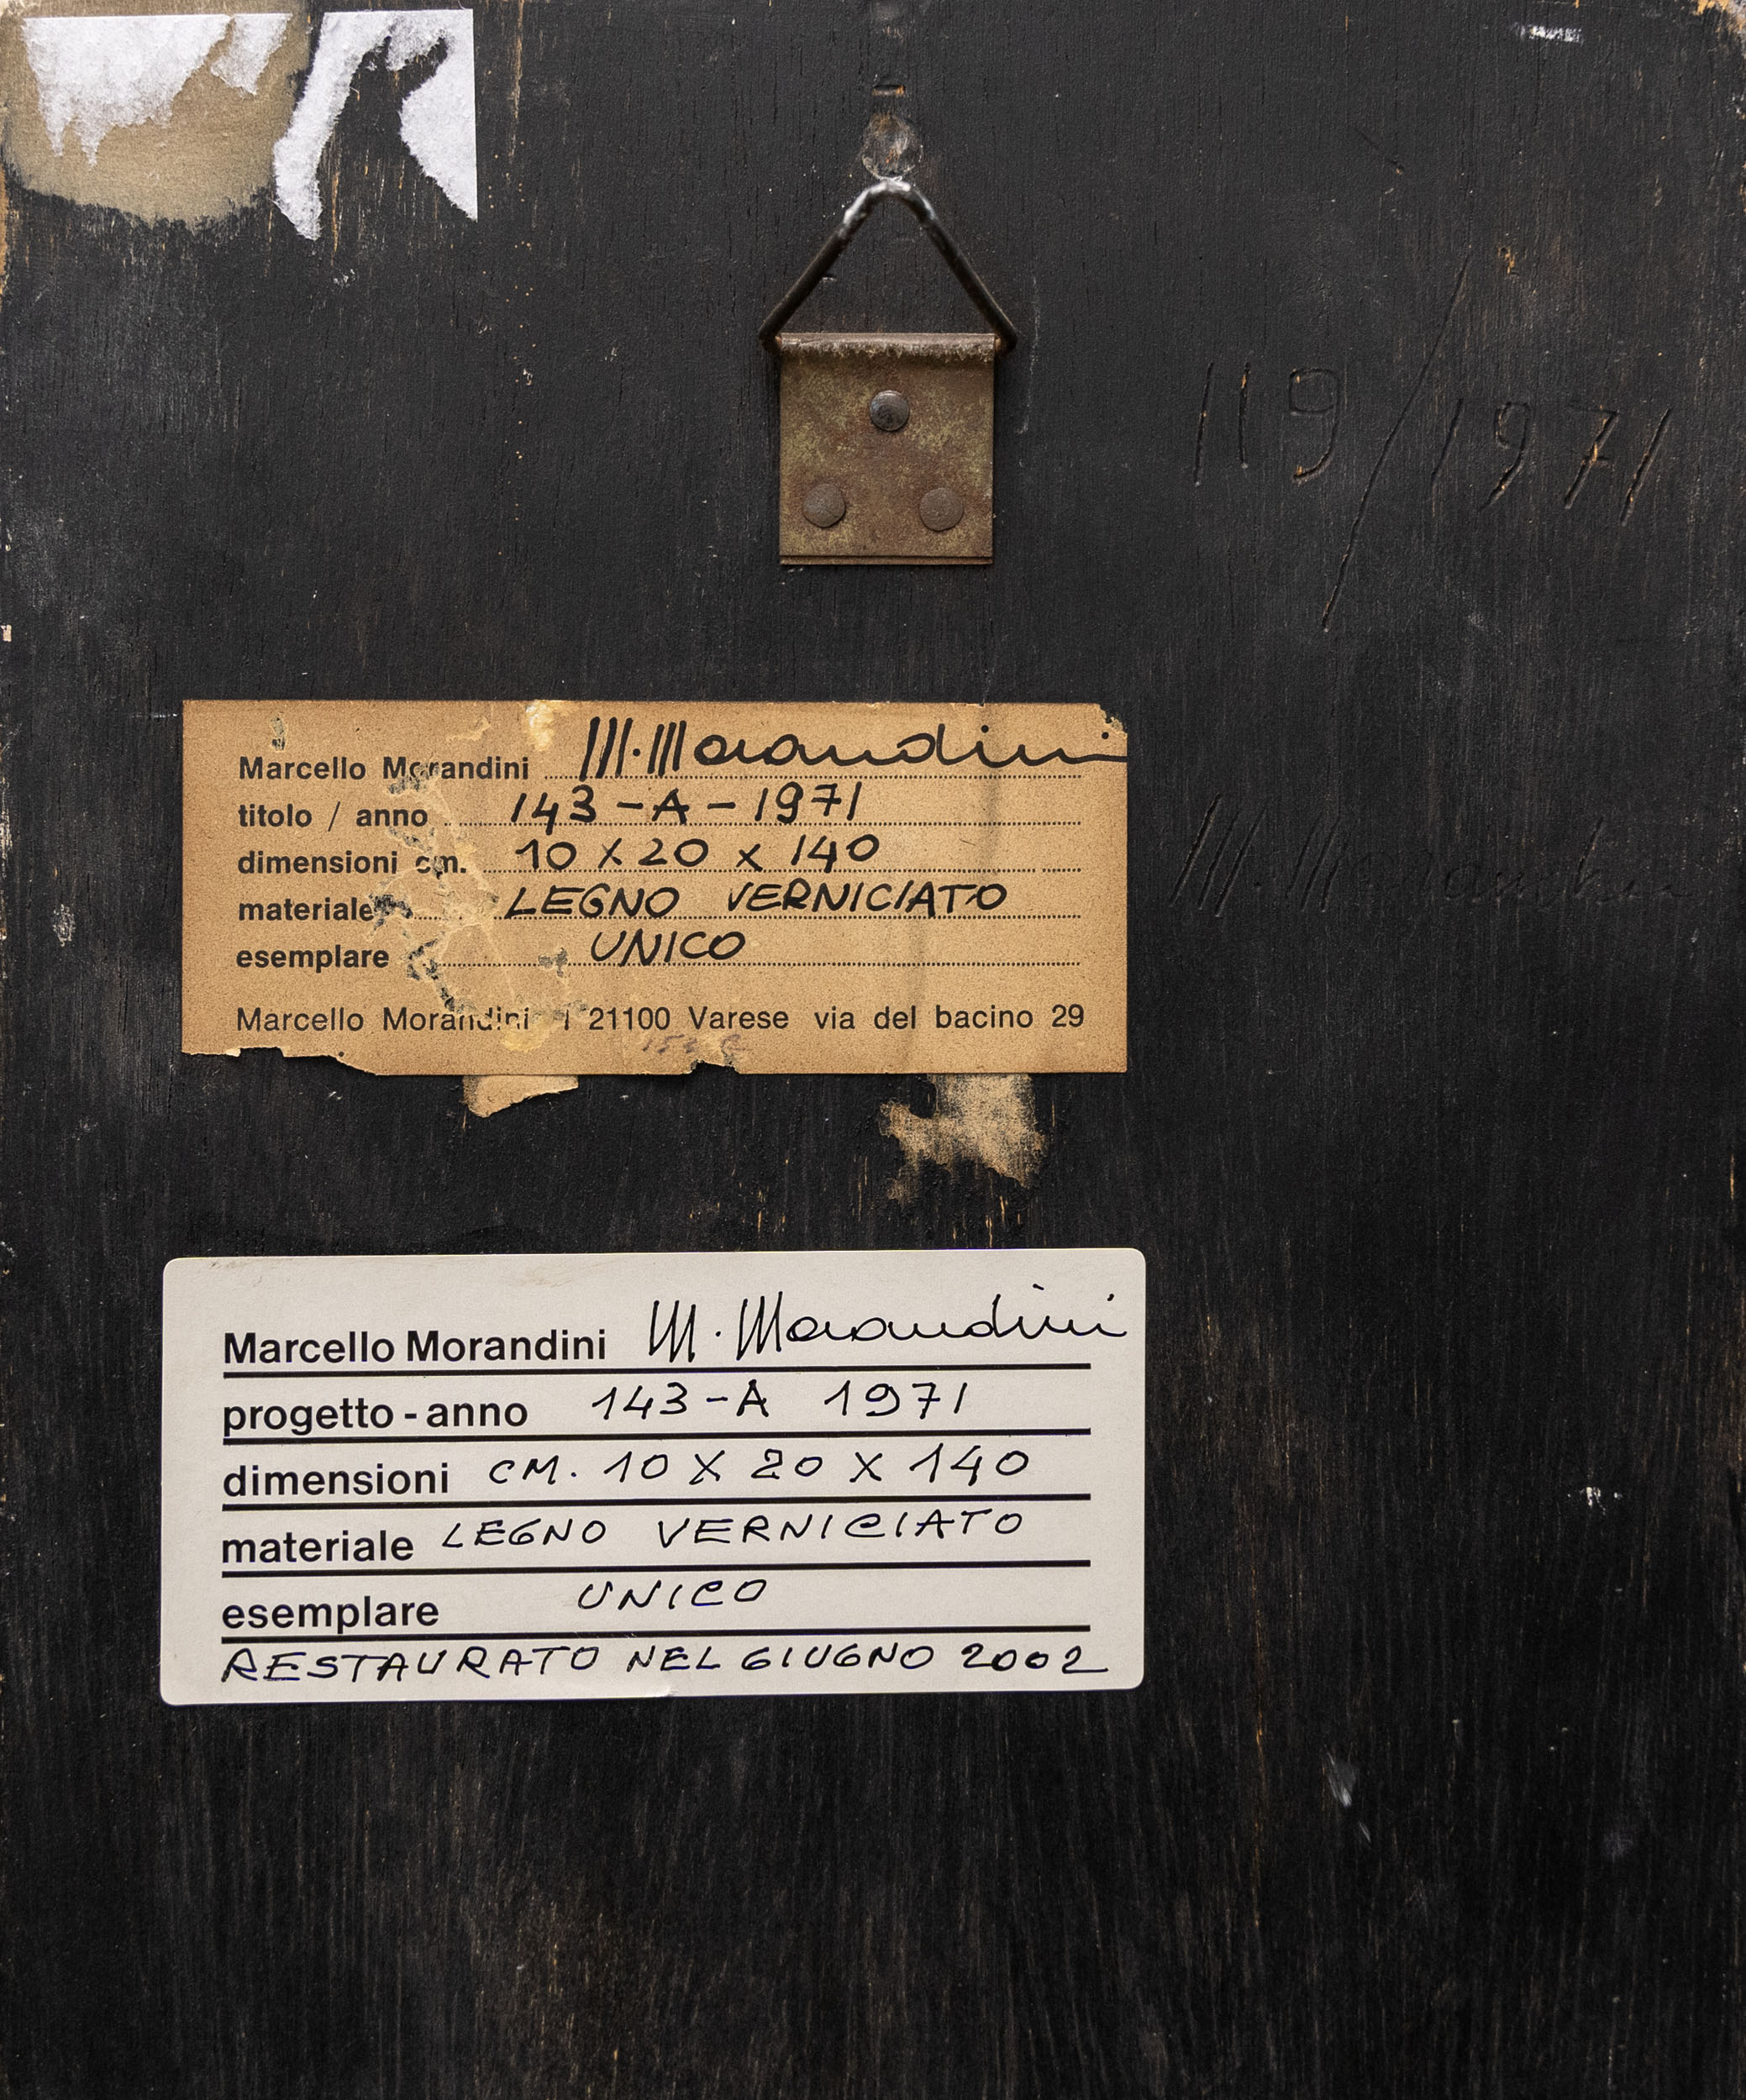 119/1971
Marcello Morandini M. Morandini
titolo / anno 143-A-1971
dimensioni cm. 10 X 20 x 140
materiale LEGNO VERNICIATO
esemplare UNICO
Marcello Morandini I 21100 Varese via del bacino 29
M. Morandini
Marcello Morandini M. Morandini
progetto - anno 143-A 1971
dimensioni CM. 10 X 20 X 140
materiale LEGNO VERNICIATO
esemplare UNICO
RESTAURATO NEL GIUGNO 2002